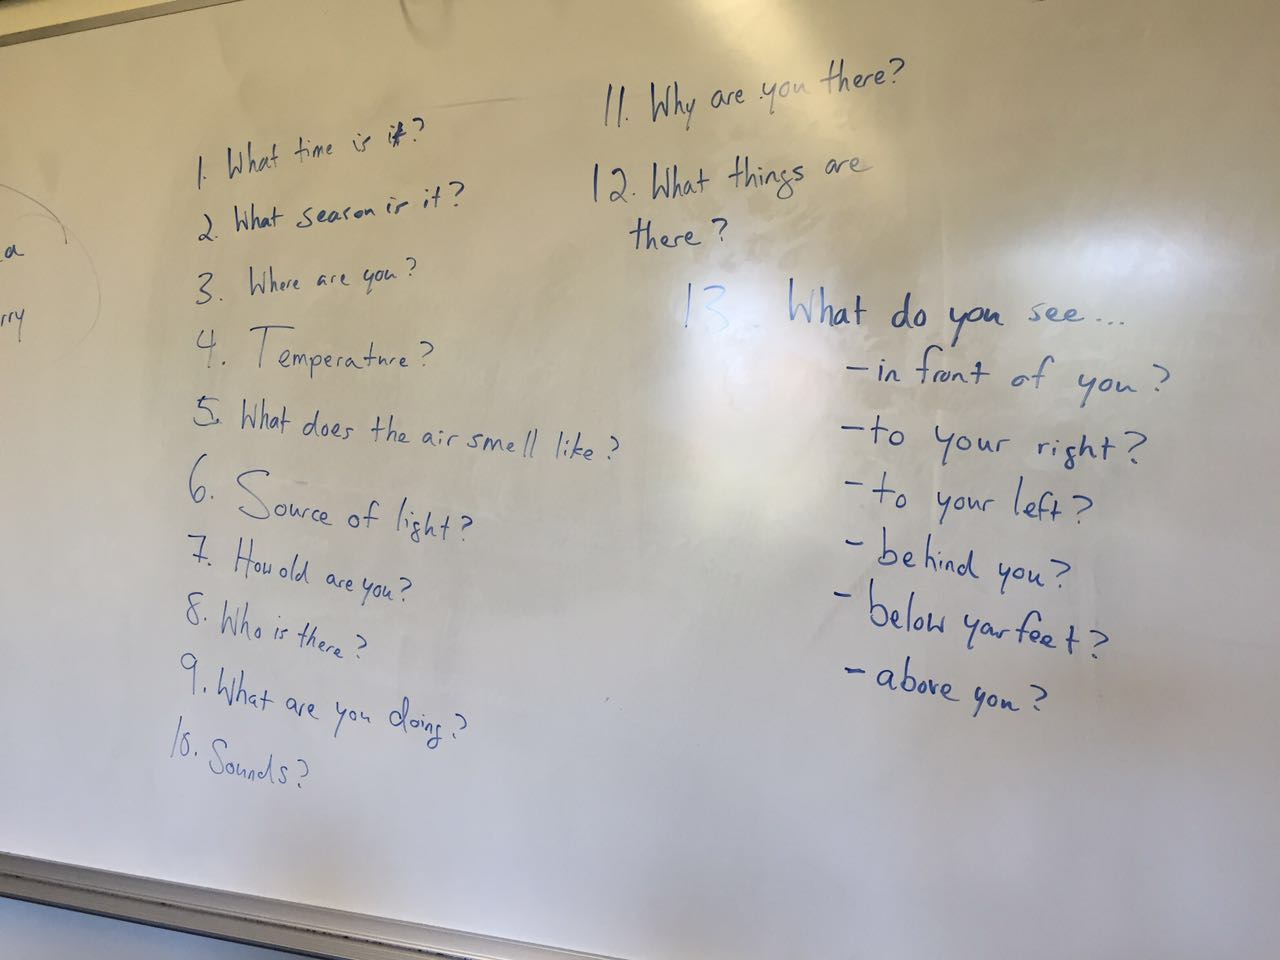 a
rry
1. What time is it?
2. What season is it?
3. Where are you?
4. Temperature?
5. What does the air smell like?
6. Source of light?
7. How old are you?
8. Who is there?
9. What are you doing?
10. Sounds?
11. Why are you there?
12. What things are
there?
13. What do you see...
- in front of you?
- to your right?
- to your left?
- behind you?
- below your feet?
- above you?